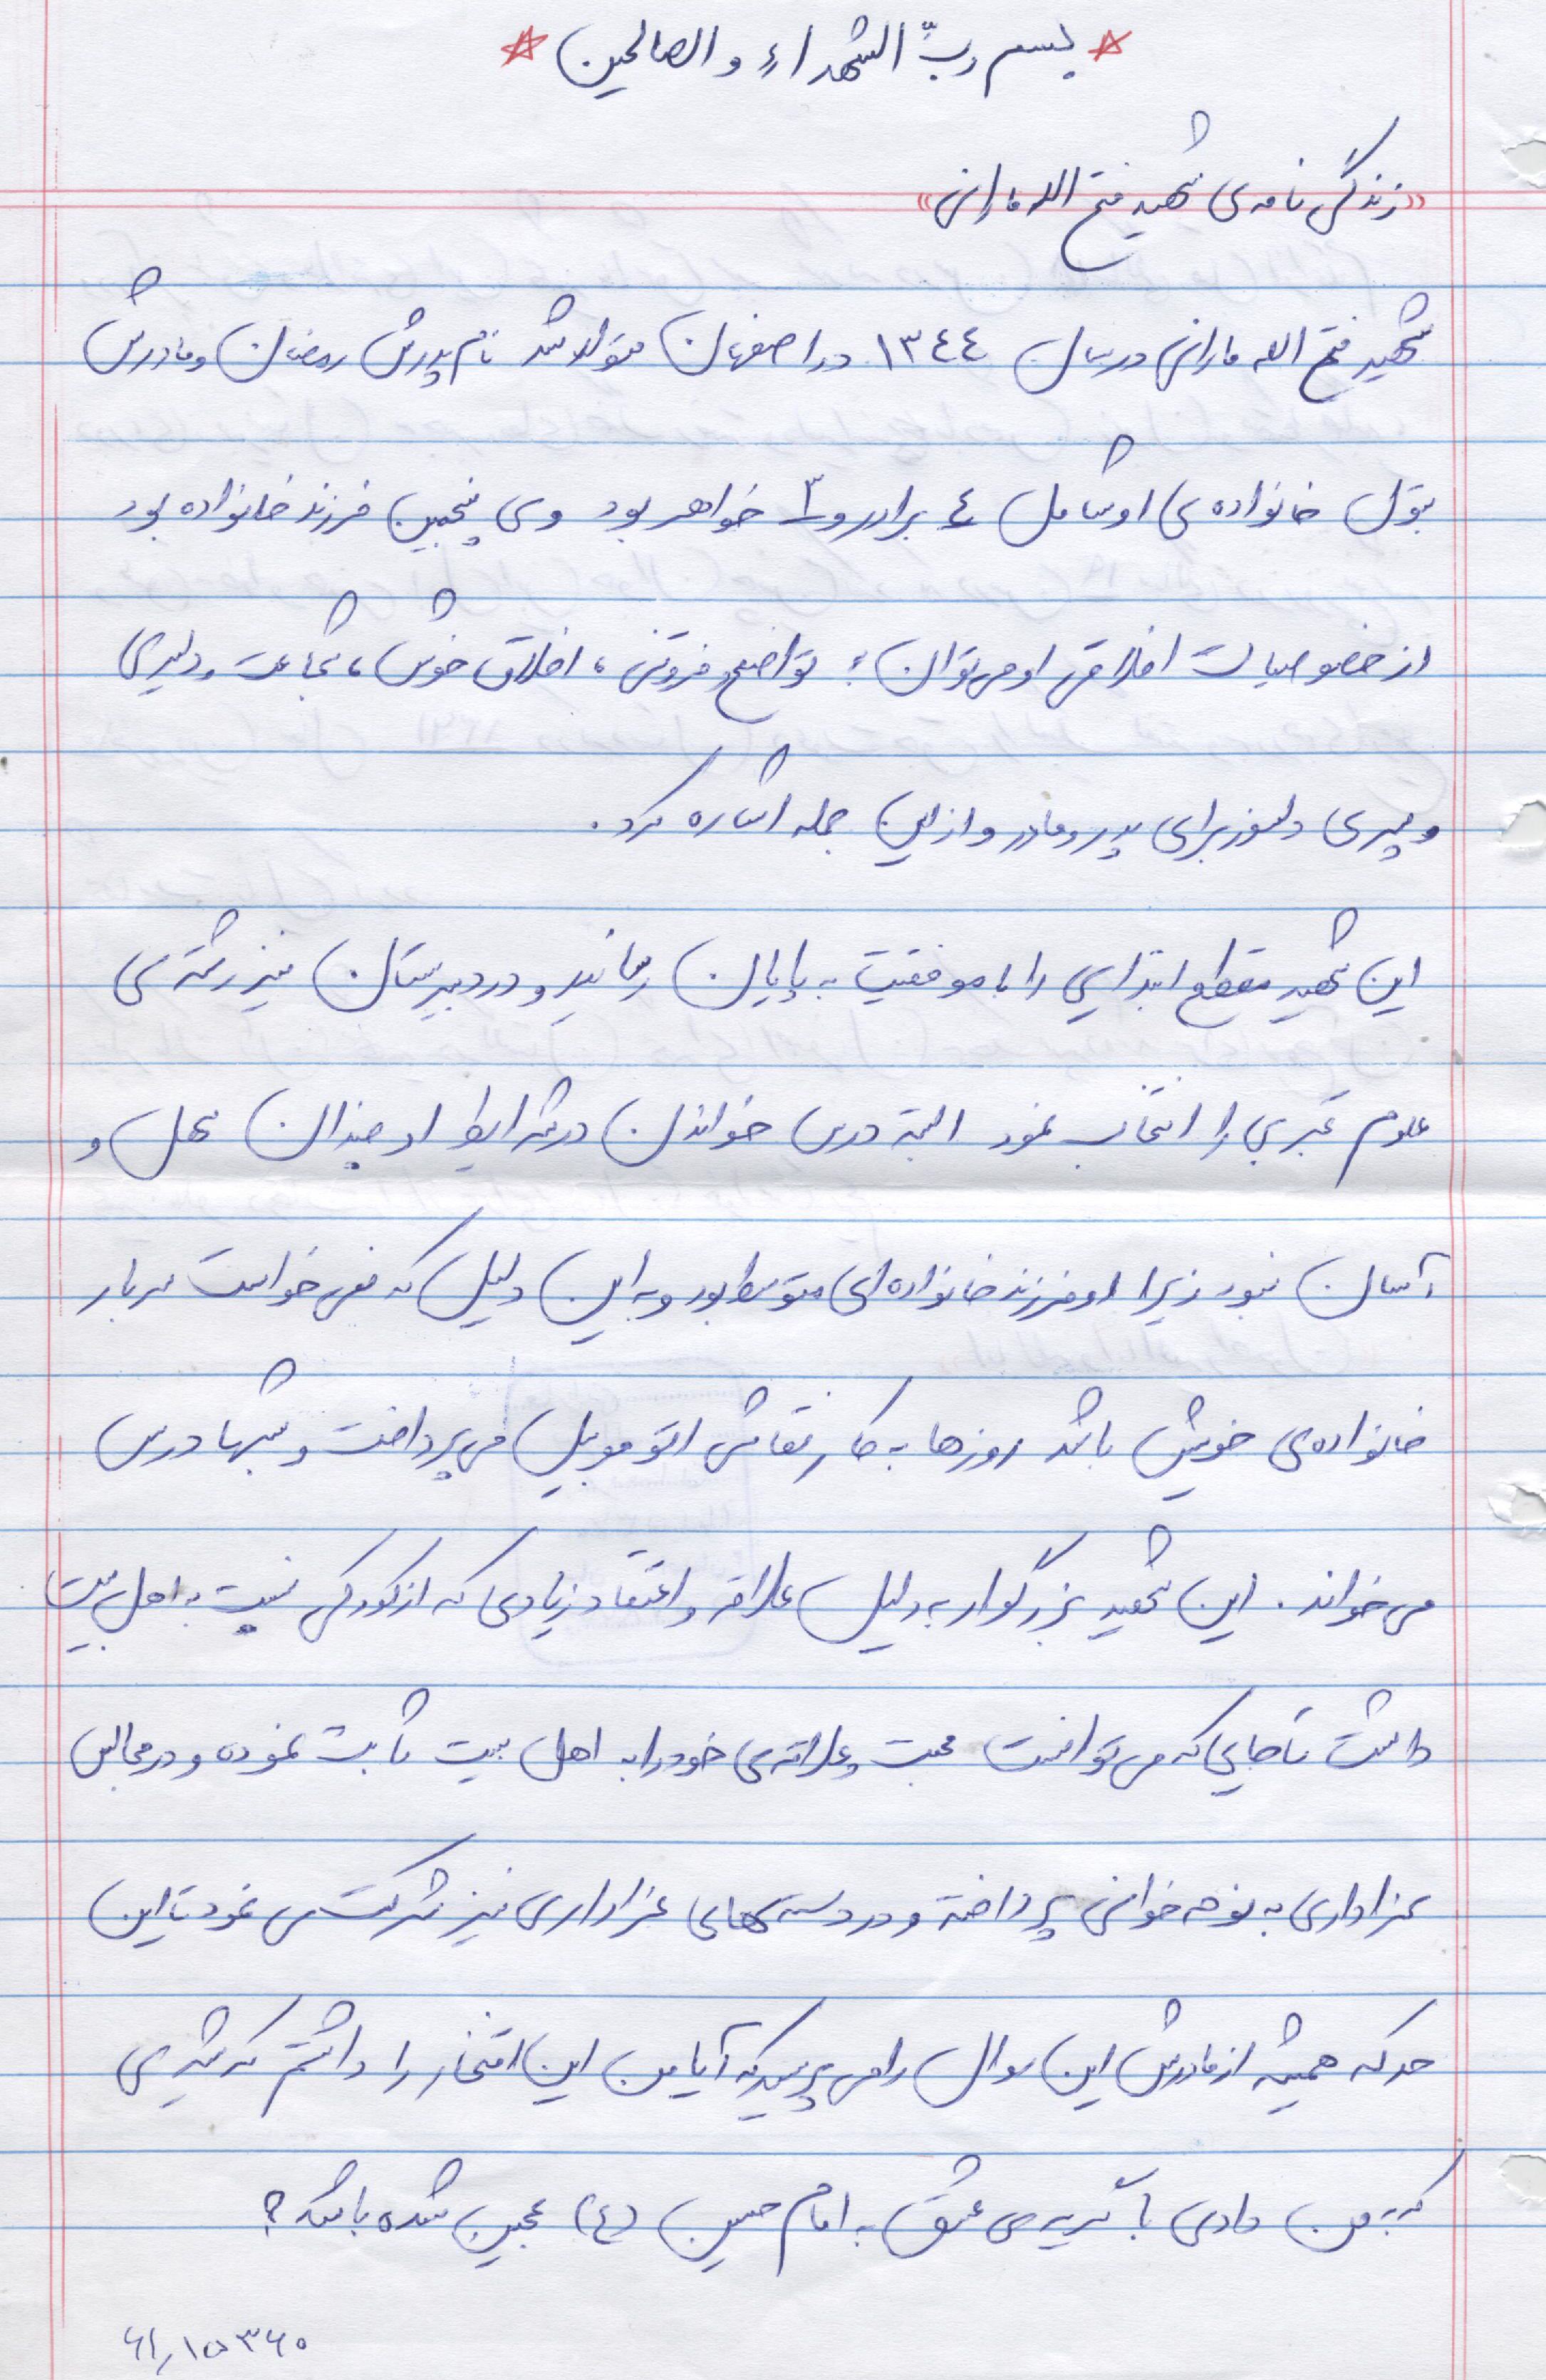 بسم ربّ الشهداء و الصالحین
«زندگی نامه ی شهید فتح الله مارانی»
شهید فتح الله مارانی در سال ۱۳٤٤ در اصفهان متولد شد نام پدرش رمضان و مادرش
بتول خانواده ی او شامل ٤ برادر و ۳ خواهر بود وی پنجمین فرزند خانواده بود
از خصوصیات اخلاقی او می توان : تواضع و فروتنی ، اخلاق خوش ، شجاعت و دلیری
و پسری دلسوز برای پدر و مادر و از این جمله اشاره کرد .
این شهید مقطع ابتدایی را با موفقیت به پایان رسانید و در دبیرستان نیز رشته ی
علوم تجربی را انتخاب نمود البته درس خواندن در شرایط او چندان سهل و
آسان نبود زیرا او فرزند خانواده ای متوسط بود و به این دلیل که نمی خواست سربار
خانواده ی خویش باشد روزها به کار نقاشی اتوموبیل می پرداخت و شبها درس
می خواند . این شهید بزرگوار به دلیل علاقه و اعتقاد زیادی که از کودکی نسبت به اهل بیت
داشت تا جایی که می توانست محبت و علاقه ی خود را به اهل بیت ثابت نموده و در مجالس
عزاداری به نوحه خوانی پرداخته و در دسته های عزاداری نیز شرکت می نمود تا این
حد که همیشه از مادرش این سوال را می پرسید که آیا من این افتخار را داشتم که شیری
که به من دادی با گریه ی عشق به امام حسین (ع) عجین شده باشد ؟
۶۱٫۱۵۳۶۰